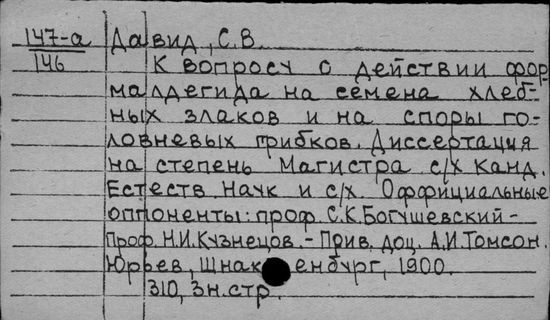 147-а Давид, С.В.
146 К вопросу о действии фор
малдегида на семена хлеб-
ных злаков и на споры го-
ловневых грибков. Диссертация
на степень Магистра с/х канд.
Естеств. Наук и с/х. Оффициальные
оппоненты: проф. С.К. Богушевский -
Проф. Н.И. Кузнецов. - Прив. доц. А.И. Томсон.
Юрьев, Шнак енбург, 1900.
310, 3н. стр.